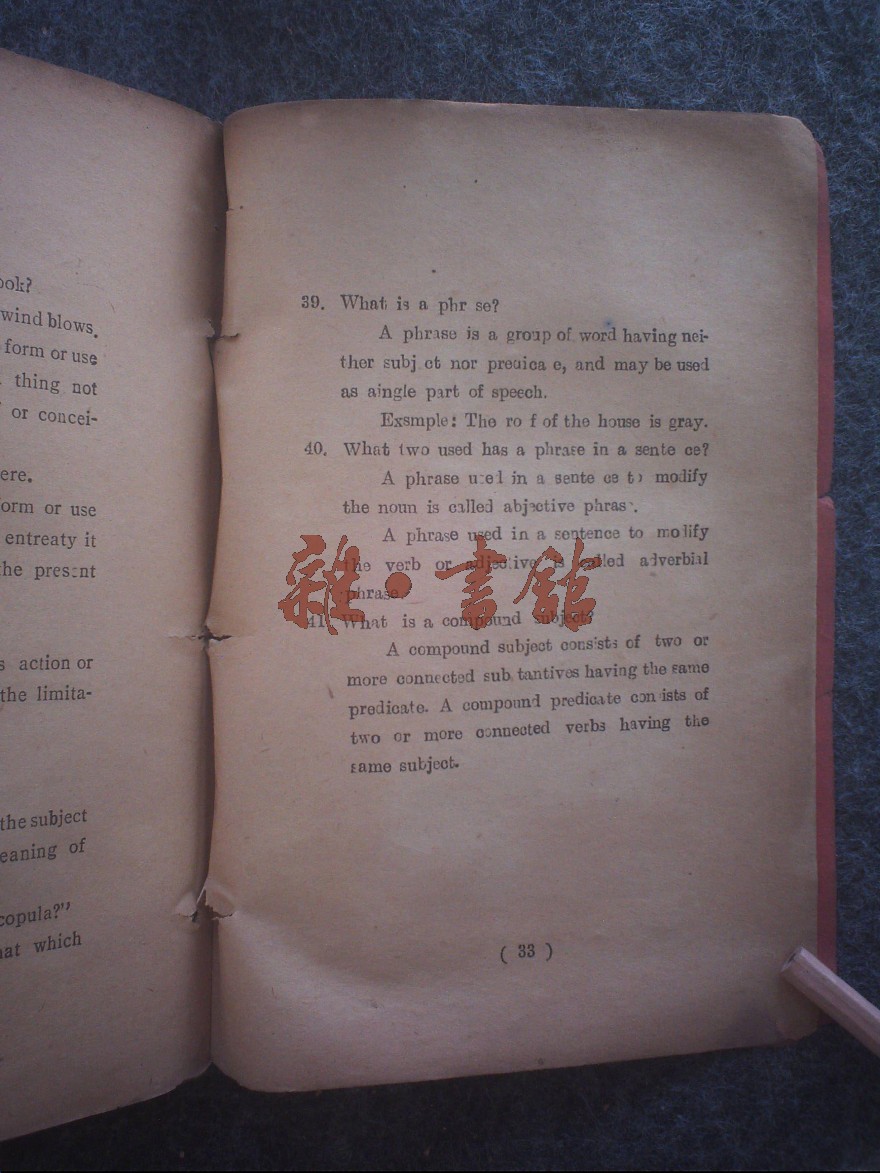 ook?
wind blows.
form or use
thing not
or concei-
ere.
form or use
entreaty it
the present
s action or
the limita-
the subject
eaning of
copula?"
hat which
39. What is a phr se?
A phrase is a group of word having nei-
ther subj ct nor predica e, and may be used
as aingle part of speech.
Exsmple: The ro f of the house is gray.
40. What two used has a phrase in a sente ce?
A phrase used in a sente ce to modify
the noun is called abjective phras .
A phrase used in a sentence to modify
the verb or adjective is called adverbial
phrase.
41. What is a compound subject?
A compound subject consists of two or
more connected sub tantives having the same
predicate. A compound predicate con ists of
two or more connected verbs having the
same subject.
( 33 )
雜·書館